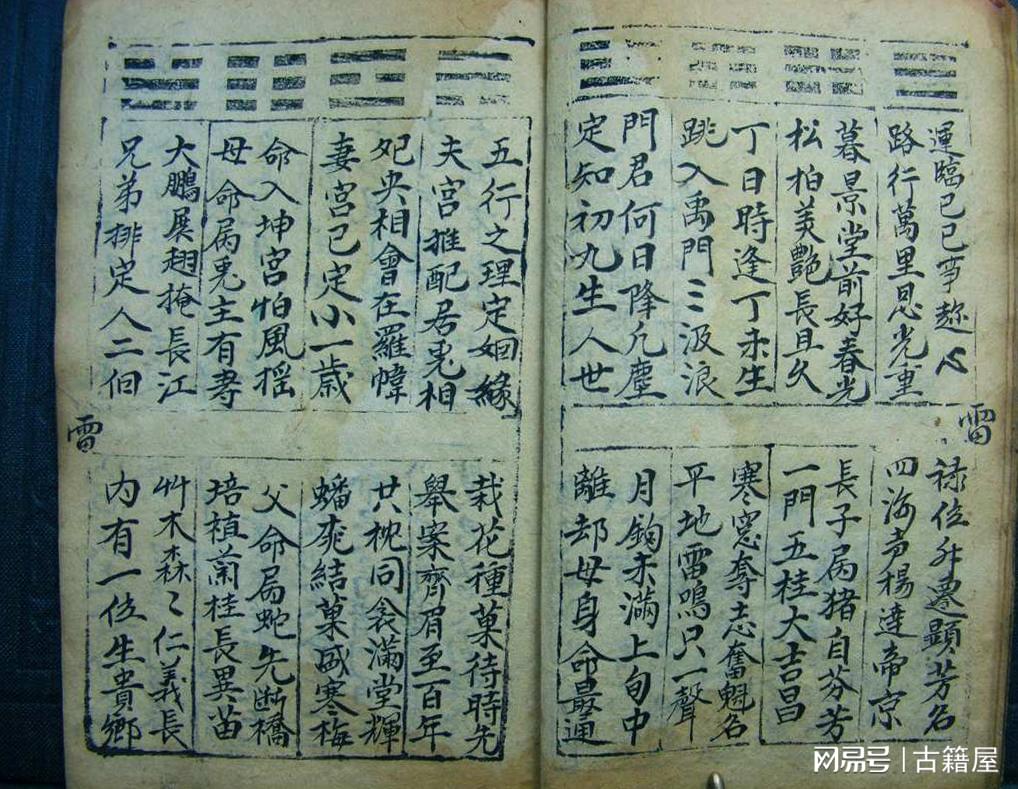 運臨已巳亨趂心
路行萬里恩光重
暮景堂前好春光
松柏美艷長且久
丁日時逢丁未生
跳入禹門三汲浪
門君何日降凡塵
定知初九生人世
雷
祿位升遷顯芳名
四海声楊達帝京
長子屬猪自芬芳
一門五桂大吉昌
寒窓奪志奮魁名
平地雷鳴只一聲
月鈎未滿上旬中
離却母身命最通
五行之理定姻緣
夫宮推配居兎相
夗央相會在羅幃
妻宮已定小一歲
命入坤宮怕風摇
母命屬兎主有寿
大鵬展翅掩長江
兄弟排定人二伯
雷
栽花種菓待時先
舉案齊眉至百年
共枕同衾滿堂輝
蟠桃結菓寒梅
父命屬蛇先断橋
培植蘭桂長異苗
艸木森〻仁義長
内有一位生貴鄉
网易号 | 古籍屋